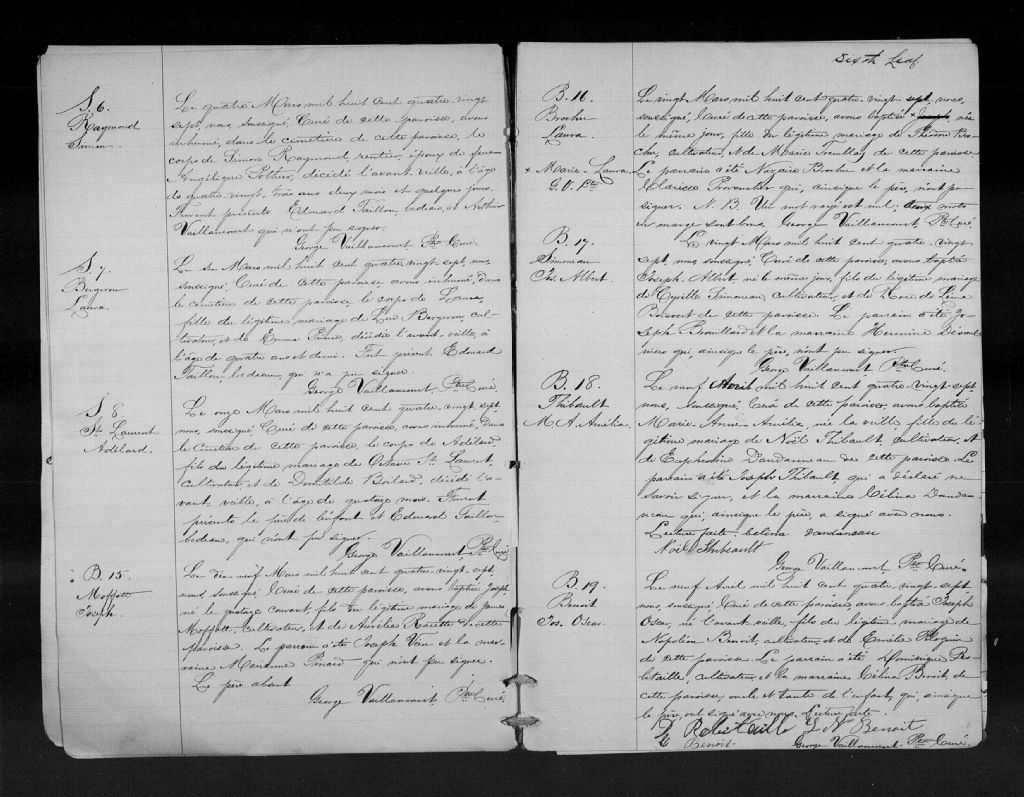 S. 6.
Raymond
Simon.
Le quatre Mars mil huit cent quatre-vingt
sept, nous, soussigné, Curé de cette paroisse, avons
inhumé, dans le cimetière de cette paroisse, le
corps de Simon Raymond, rentier, époux de feue
Angélique Pothier, décédé l'avant-veille, à l'âge
de quatre vingt trois ans deux mois et quelques jours.
Furent présents Edouard Taillon, bedeau, et Arthur
Vaillancourt qui n'ont pu signer.
George Vaillancourt, Ptre Curé.
S. 7.
Bergeron
Laura.
Le six Mars mil huit cent quatre-vingt-sept, nous,
soussigné, Curé de cette paroisse avons inhumé, dans
le cimetière de cette paroisse, le corps de Laura,
fille du légitime mariage de Luc Bergeron, cul-
tivateur, et de Emma Prince, décédée l'avant-veille, à
l'âge de quatre ans et demi. Fut présent Edouard
Taillon, bedeau, qui n'a pu signer.
George Vaillancourt, Ptre Curé.
S. 8.
St. Laurent
Adélard.
Le onze Mars mil huit cent quatre-vingt sept
nous, soussigné, Curé de cette paroisse, avons inhumé, dans
le cimetière de cette paroisse, le corps de Adélard,
fils du légitime mariage de Octave St. Laurent,
cultivateur, et de Domitilde Boilard, décédé l'a-
vant-veille, à l'âge de quatorze mois. Furent
présents le père de l'enfant et Edouard Taillon
bedeau, qui n'ont pu signer.
George Vaillancourt Ptre Curé
B. 15
Moffatt
Joseph.
Le dix-neuf Mars mil huit cent quatre-vingt sept,
nous, soussigné Curé de cette paroisse, avons baptisé Joseph
né le quatorze courant, fils du légitime mariage de James
Moffatt, cultivateur, et de Aurélie Rosette de cette
paroisse. Le parrain a été Joseph Vien et la mar-
raine Marianne Pinard qui n'ont pu signer.
Le père absent
George Vaillancourt, Ptre Curé.
Sixth Leaf
B. 16.
Brochu
Laura.
x Marie-Laura
G. V. Ptre
Le vingt Mars mil huit cent quatre-vingt sept, nous,
soussigné, Curé de cette paroisse, avons baptisé x née
le même jour, fille du légitime mariage de Théodore Bro-
chu, cultivateur, et de Marie Tremblay de cette paroisse
Le parrain a été Nazaire Brochu et la marraine
Clarisse Provencher qui, ainsi que le père, n'ont pu
signer. N. B. Un mot rayé est nul, deux mots
en marge sont bons. George Vaillancourt, Ptre Curé.
B. 17.
Simoneau
Jos. Albert.
Le vingt Mars mil huit cent quatre-vingt
sept, nous, soussigné Curé de cette paroisse, avons baptisé
Joseph Albert, né le même jour, fils du légitime mariage
de Cyrille Simoneau, cultivateur, et de Rose de Lima
Boisvert de cette paroisse. Le parrain a été Jo-
seph Brouillard et la marraine Hermine Desaul-
niers qui, ainsi que le père, n'ont pu signer.
George Vaillancourt, Ptre Curé.
B. 18.
Thibault
M. A. Amélia.
Le neuf Avril mil huit cent quatre-vingt sept
nous, soussigné, Curé de cette paroisse, avons baptisé
Marie-Anne-Amélia, née la veille, fille du lé-
gitime mariage de Noël Thibault, cultivateur, et
de Euphrosine Dandonneau de cette paroisse. Le
parrain a été Joseph Thibault, qui a déclaré ne
savoir signer, et la marraine Célina Dandon-
neau qui, ainsi que le père, a signé avec nous.
Lecture faite. Celina dandoneau
Noël Thibeault
George Vaillancourt Ptre Curé.
B. 19.
Benoit
Jos. Oscar.
Le neuf Avril mil huit cent quatre-vingt-sept
nous, soussigné Curé de cette paroisse, avons baptisé Joseph
Oscar, né l'avant-veille, fils du légitime mariage de
Napoléon Benoit, cultivateur, et de Emilie Pelloquin
de cette paroisse. Le parrain a été Dominique Ro-
bitaille, cultivateur, et la marraine Célina Benoit, de
cette paroisse, oncle et tante de l'enfant, qui, ainsi que
le père, ont signé avec nous. Lecture faite.
D Robitaille L N Benoit
C Benoit George Vaillancourt Ptre Curé.